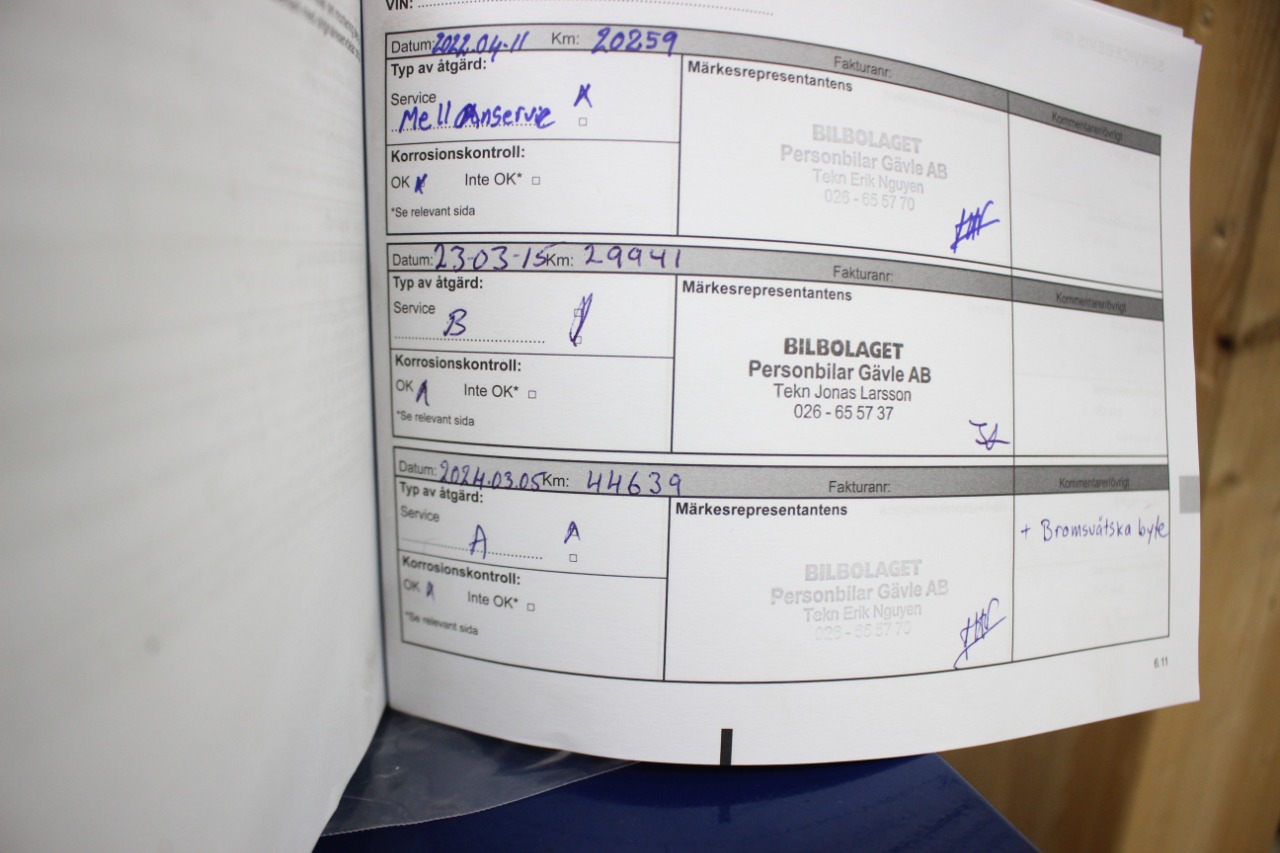 VIN:
Datum: 2022.04-11 Km: 20259 Fakturanr:
Typ av åtgärd:
Service
Mellanservie
Korrosionskontroll:
OK Inte OK*
*Se relevant sida
Märkesrepresentantens
BILBOLAGET
Personbilar Gävle AB
Tekn Erik Nguyen
026 - 65 57 70
Kommentarer/övrigt
Datum: 23-03-15 Km: 29941 Fakturanr:
Typ av åtgärd:
Service
B
Korrosionskontroll:
OK Inte OK*
*Se relevant sida
Märkesrepresentantens
BILBOLAGET
Personbilar Gävle AB
Tekn Jonas Larsson
026 - 65 57 37
JL
Kommentarer/övrigt
Datum: 2024.03.05 Km: 44639 Fakturanr:
Typ av åtgärd:
Service
A
Korrosionskontroll:
OK Inte OK*
*Se relevant sida
Märkesrepresentantens
BILBOLAGET
Personbilar Gävle AB
Tekn Erik Nguyen
026 - 65 57 70
Kommentarer/övrigt
+ Bromsvätska byte
6.11